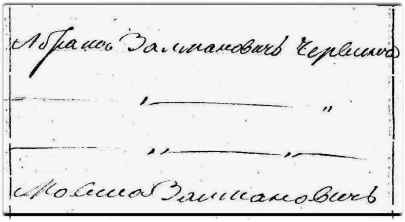 Абрамъ Залмановичъ Червинск
— " — "
— " — " —
Мовша Залмановичъ